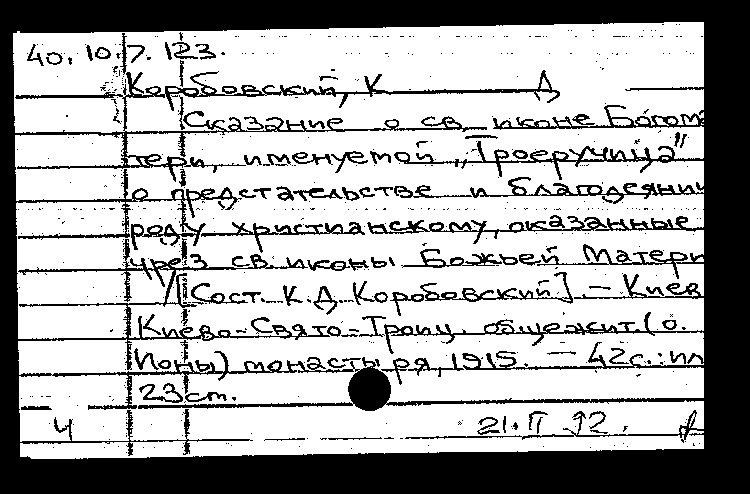 40.10.7.123.
Коробовский, К Д
Сказание о св. иконе Богома
тери, именуемой „Троеручица"
о предстательстве и благодеянии
роду христианскому, оказанные
чрез св. иконы Божьей Матери
/[Сост. К.Д. Коробовский]. — Киев
Киево-Свято-Троиц. общежит. (о.
Ионы) монастыря, 1915. — 42 с.: ил
23 см.
Ч 21.II 92.